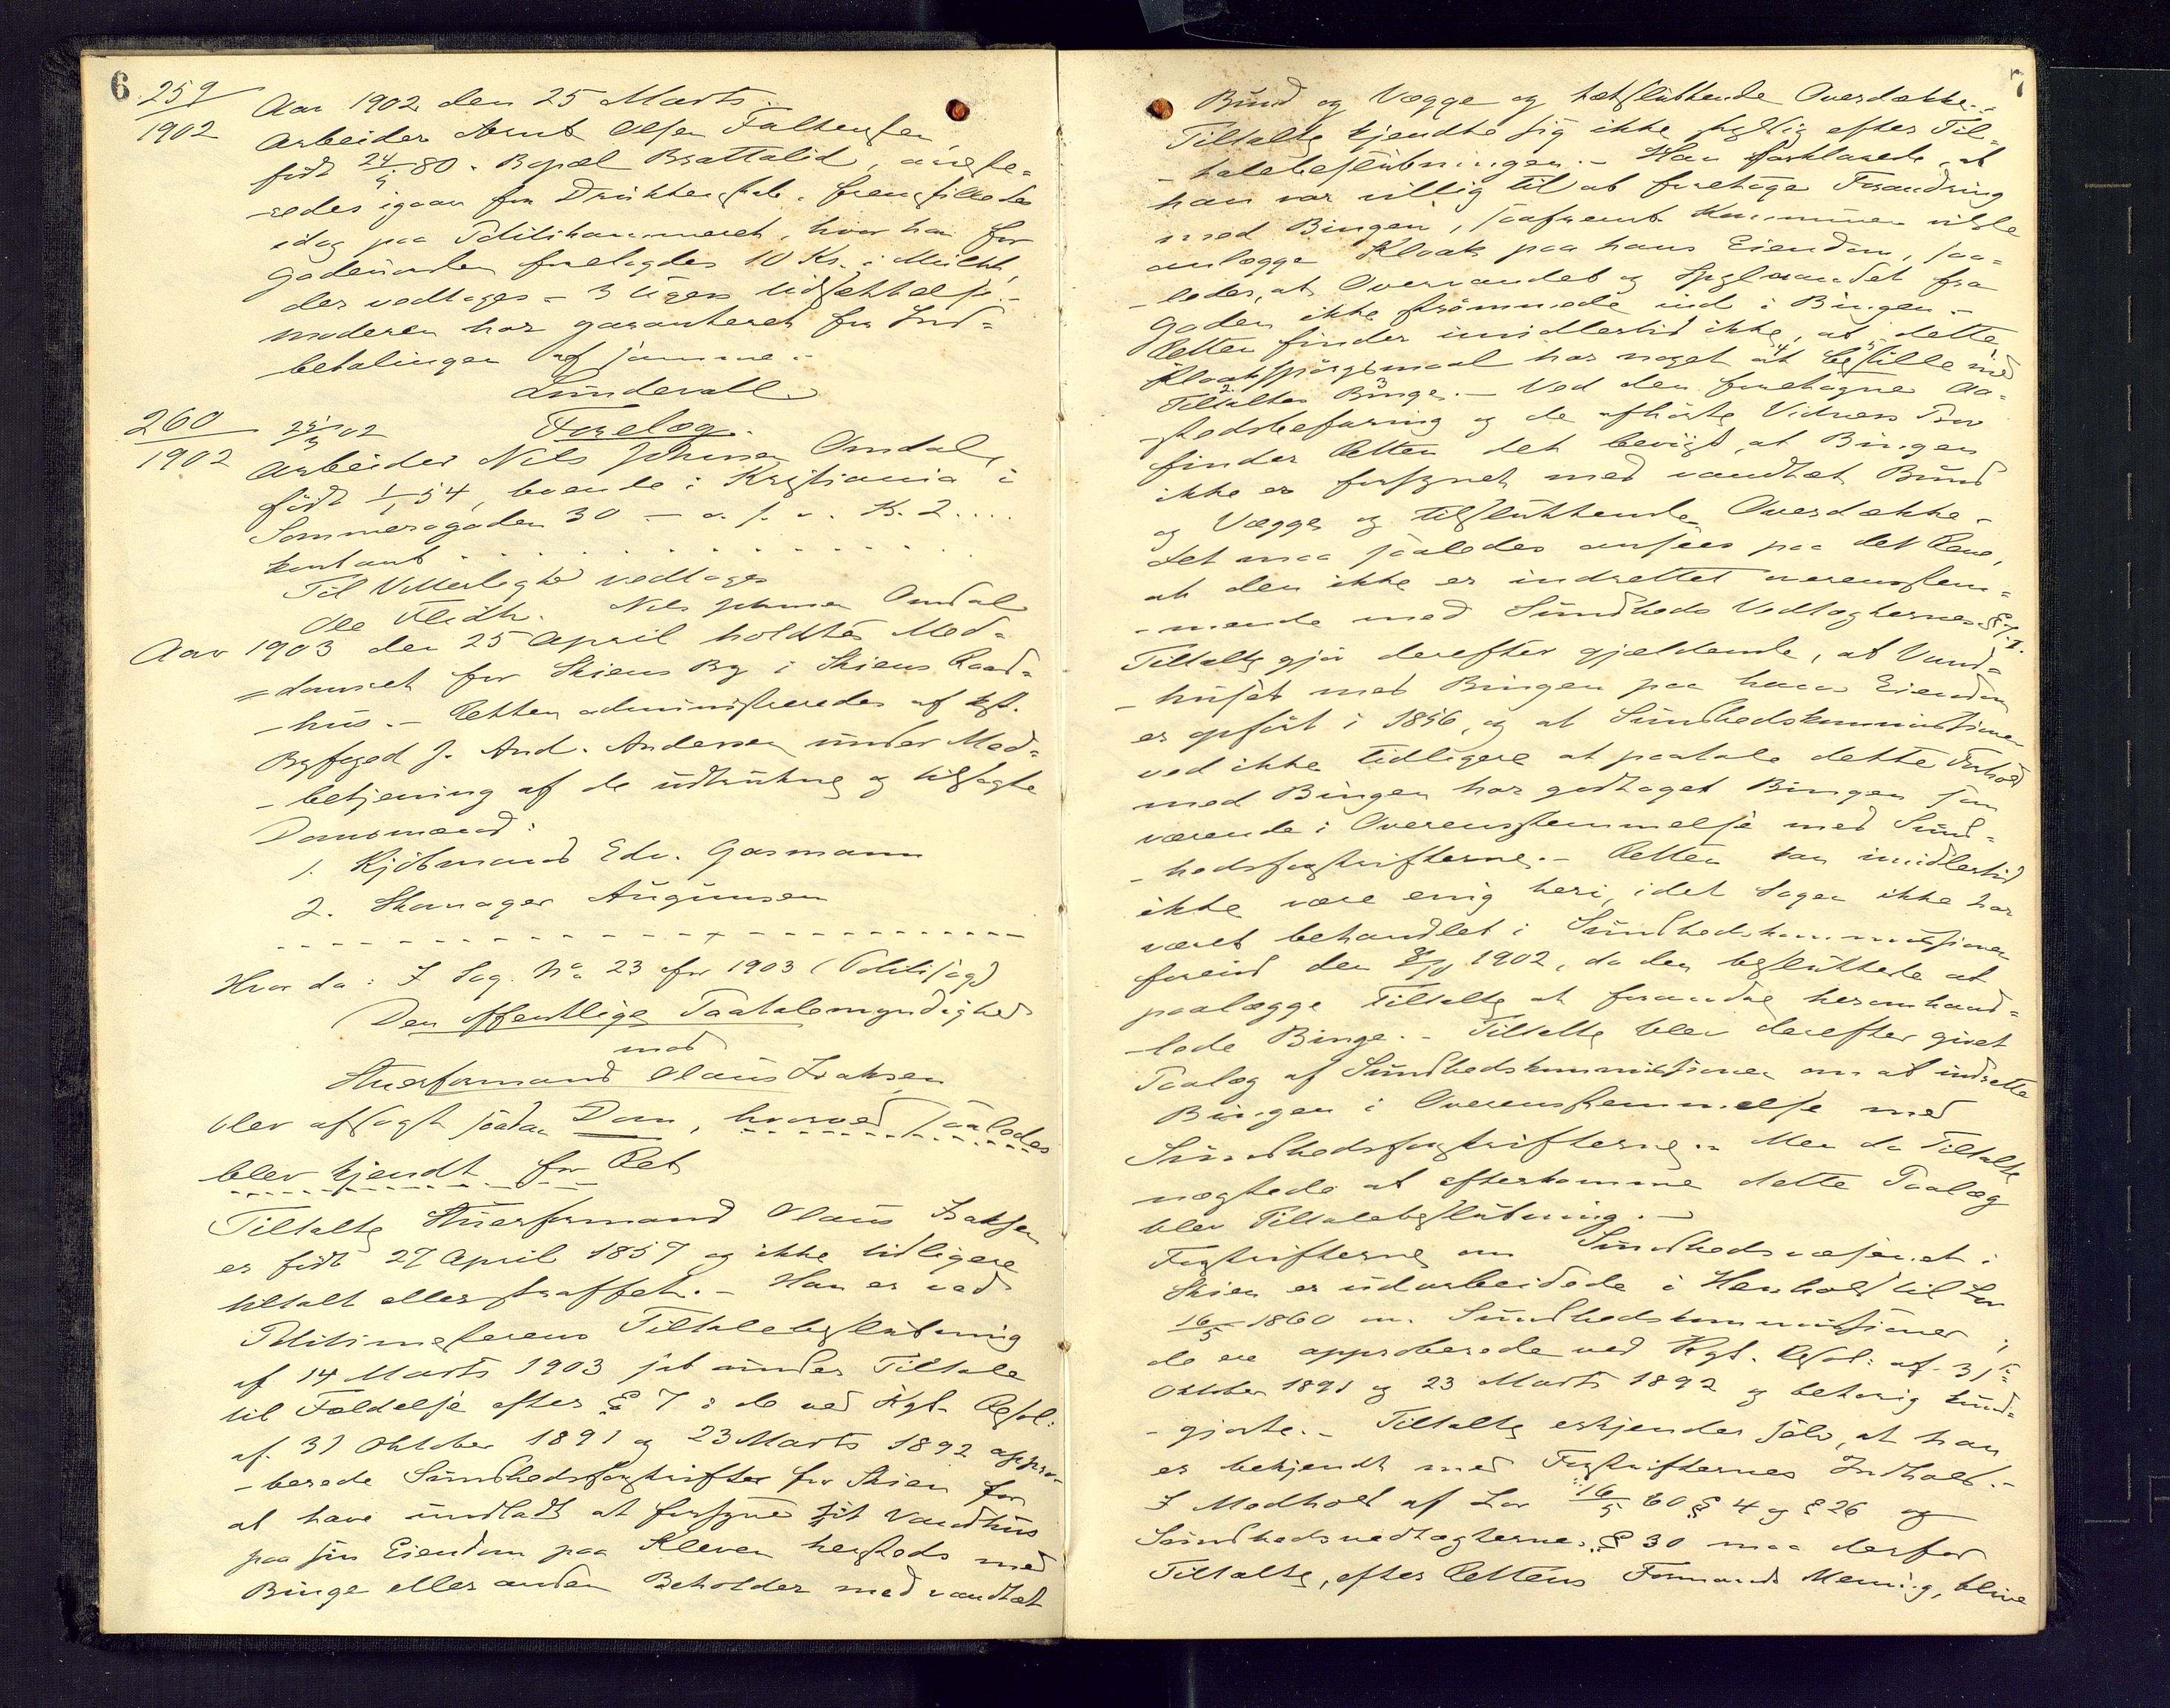 6
259
1902
Aar 1902 den 25 Marts.
Arbeider Arnt Olsen Faltensen,
født 24/4 80. Bopæl Brattalid, anhe-
-redes igaar for Drukkenskab. fremstilledes
idag paa Politikammeret, hvor han for
Gadeuorden forelagdes 10 Kr. i Mulkt,
der vedtages - 3 Ugers Udsættelse.-
moderen har garanteret for Ind-
betalingen af samme.-
Lundevall.
260
1902
25/3 02
Forelæg.
Arbeider Nils Johnsen Omdal,
født 1/1 54, boende i Kristiania i
Sommerogaden 30 - o. s. v. K. 2....
kontant . . . . . . . . . .
Til Vitterlighed vedtages
Ole Flidh. Nils Johnsen Omdal
Aar 1903 den 25 April holdtes Med-
=domsret for Skiens By i Skiens Raad-
-hus.- Retten administreredes af kst.
Byfoged J. And. Andersen under Med-
-betjening af de udtrukne og tilsagte
Domsmænd:
1. Kjøbmand Edv. Gasmann
2. Skomager Augunsen
Hvor da: I Sag No 23 for 1903 (Politisag)
Den offentlige Paatalemyndighed
mod
Stuerformand Olaus Isaksen
blev afsagt saadan Dom, hvorved saaledes
blev kjendt for Ret
Tiltalte Stuerformand Olaus Isaksen
er født 27 April 1857 og ikke tidligere
tiltalt eller straffet.- Han er ved
Politimesterens Tiltalebeslutning
af 14 Marts 1903 sat under Tiltale
til Fældelse efter § 7 i de ved Kgl. Resol:
af. 31 Oktober 1891 og 23 Marts 1892 appro-
-berede Sundhedsforskrifter for Skien for
at have undladt at forsyne sit Vandhus
paa sin Eiendom paa Kleven hersteds med
Binge eller anden Beholder med vandtæt
7
Bund og Vægge og tætsluttende Overdække.-
Tiltalte kjendte sig ikke skyldig efter Til-
-talebeslutningen.- Han forklarede, at
han var villig til at foretage Forandring
med Bingen, saafremt Kommunen vilde
anlægge Kloak paa hans Eiendom, saa-
-ledes, at Overvandet og Spylevandet fra
Gaden ikke strømmede ind i Bingen.-
Retten finder imidlertid ikke, at dette
Kloakspørgsmaal har noget at bestille med
Tiltaltes Binge.- Ved den foretagne Aa-
-stedsbefaring og de afhørte Vidners Prov
finder Retten det bevist, at Bingen
ikke er forsynet med vandtæt Bund
og Vægge og tilsluttende Overdække.-
Det maa saaledes ansees paa det Rene,
at den ikke er indrettet overensstem-
-mende med Sundheds Vedtægternes § 7.
Tiltalte gjør derefter gjældende, at Vand-
-huset med Bingen paa hans Eiendom
er opført i 1856, og at Sundhedskommissionen
ved ikke tidligere at paatale dette Forhold
med Bingen har godtaget Bingen som
værende i Overensstemmelse med Sund-
-hedsforskrifterne.- Retten kan imidlertid
ikke være enig heri, idet Sagen ikke har
været behandlet i Sundhedskommissionen
førend den 1902, da den besluttede at
paalægge Tiltalte at forandre heromhand-
-lede Binge.- Tiltalte blev derefter givet
Paalæg af Sundhedskommissionen om at indrette
Bingen i Overensstemmelse med
Sundhedsforskrifterne.- Men da Tiltalte
nægtede at efterkomme dette Paalæg
blev Tiltalebeslutning.-
Forskrifterne om Sundhedsvæsenet i
Skien er udarbeidede i Henhold til Lov
16/5 1860 om Sundhedskommissioner;
de ere approberede ved Kgl. Resol: af. 31te
Oktober 1891 og 23 Marts 1892 og behørig kund-
-gjorte.- Tiltalte erkjender selv, at han
er bekjendt med Forskrifternes Indhold.-
I Medhold af Lov 16/5 60 § 4 og § 26 og
Sundhedsvedtægternes § 30 maa derfor
Tiltalte, efter Rettens Formands Mening, blive